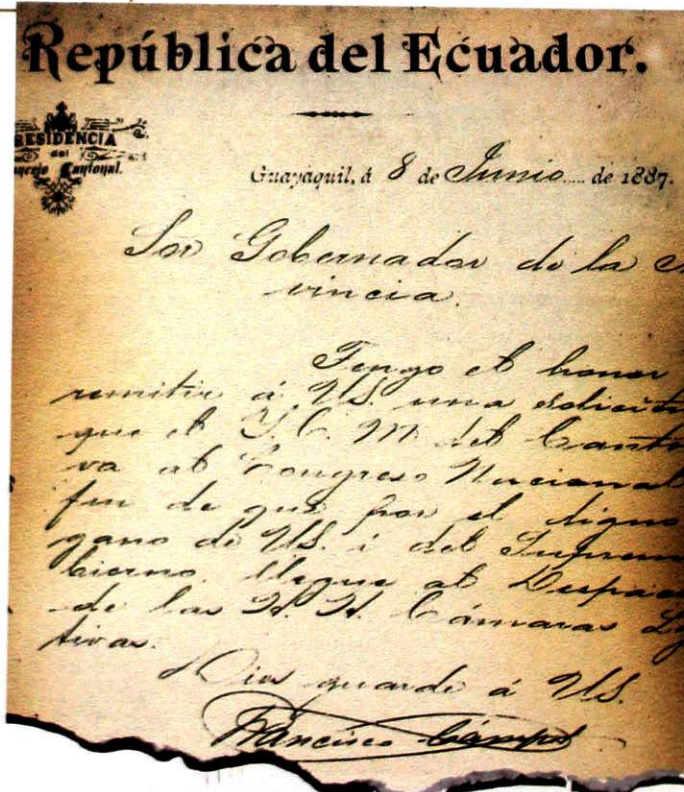 República del Ecuador.
RESIDENCIA
del
ncejo Cantonal.
Guayaquil, á 8 de Junio.... de 1887.
Sor Gobernador de la
vincia.
Tengo el honor
remitir á US. una solicitu
que el I. C. M. del Canto
va al Congreso Nacional
fin de que por el digno
gano de US. i del Suprem
bierno, llegue al Despac
de las H. H. Cámaras Le
tivas.
Dios guarde á US.
Francisco Campos